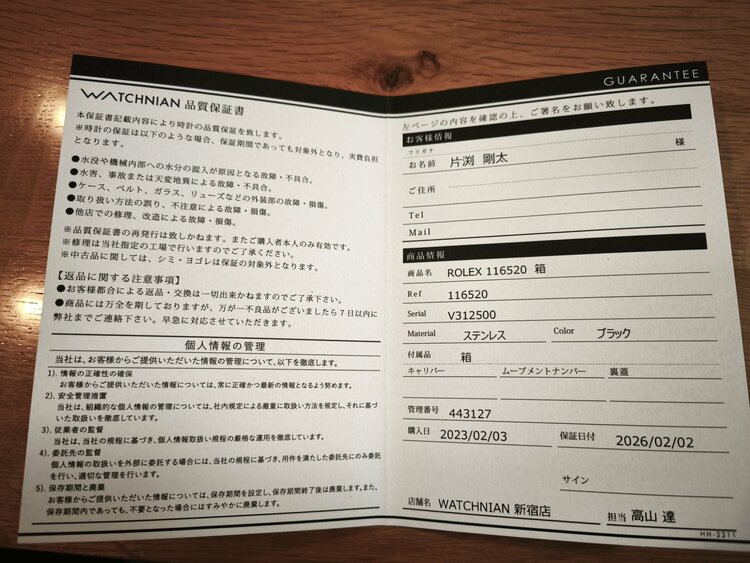 WATCHNIAN 品質保証書
本保証書記載内容により時計の品質保証を致します。
※時計の保証は以下のような場合、保証期間であっても対象外となり、実費負担
となります。
●水没や機械内部への水分の混入が原因となる故障・不具合。
●水害、事故または天変地異による故障・不具合。
●ケース、ベルト、ガラス、リューズなどの外装部の故障・損傷。
●取り扱い方法の誤り、不注意による故障・損傷。
●他店での修理、改造による故障・損傷。
※品質保証書の再発行は致しかねます。またご購入者本人のみ有効です。
※修理は当社指定の工場で行いますのでご了承ください。
※中古品に関しては、シミ・ヨゴレは保証の対象外となります。
【返品に関する注意事項】
●お客様都合による返品・交換は一切出来かねますのでご了承下さい。
●商品には万全を期しておりますが、万が一不良品がございましたら7日以内に
弊社までご連絡下さい。早急に対応させていただきます。
個人情報の管理
当社は、お客様からご提供いただいた情報の管理について、以下を徹底します。
1). 情報の正確性の確保
お客様からご提供いただいた情報については、常に正確かつ最新の情報となるよう努めます。
2). 安全管理措置
当社は、組織的な個人情報の管理については、社内規定による厳重に取扱い方法を規定し、それに基づ
いた取扱いを徹底しています。
3). 従業者の監督
当社は、当社の規程に基づき、個人情報取扱い規程の厳格な運用を徹底しています。
4). 委託先の監督
個人情報の取扱いを外部に委託する場合には、当社の規程に基づき、用件を満たした委託先にのみ委託
を行い、適切な管理を行います。
5). 保存期間と廃棄
お客様からご提供いただいた情報については、保存期間を設定し、保存期間終了後は廃棄します。また、
保存期間内であっても、不要となった場合にはすみやかに廃棄します。
GUARANTEE
左ページの内容を確認の上、ご署名をお願い致します。
お客様情報
フリガナ
お名前 片渕 剛太 様
ご住所
Tel
Mail
商品情報
商品名 ROLEX 116520 箱
Ref 116520
Serial V312500
Material ステンレス Color ブラック
付属品 箱
キャリバー ムーブメントナンバー 裏蓋
管理番号 443127
購入日 2023/02/03 保証日付 2026/02/02
サイン
店舗名 WATCHNIAN 新宿店 担当 高山 達
HH-2211